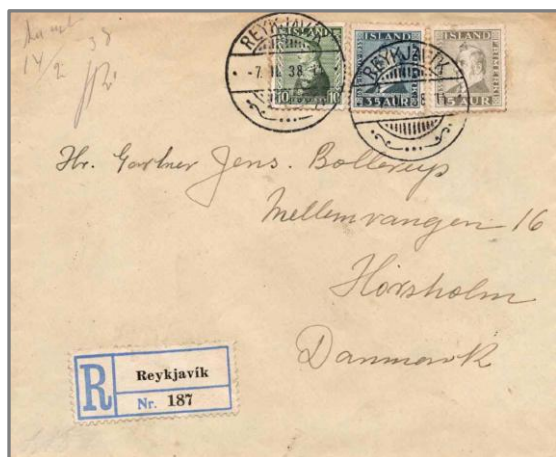 38
14
2
REYKJAVÍK
-7. 38
ÍSLAND
10 10
ÍSLAND
35 AUR
REYKJAVÍK
ÍSLAND
5 AUR
Hr. Gartner Jens. Bollerup
Mellemvangen 16
Hørsholm
Danmark
R
Reykjavík
Nr. 187